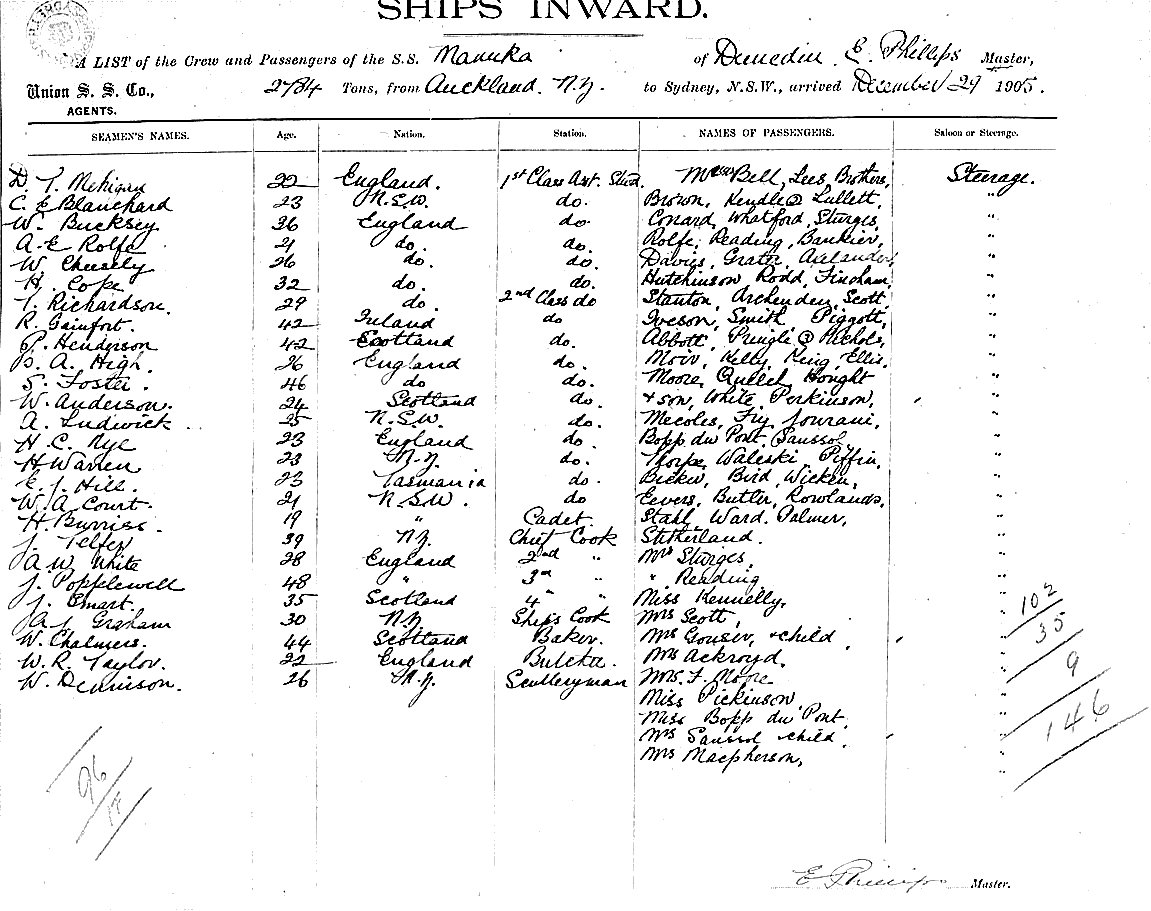 SHIPS INWARD.
A LIST of the Crew and Passengers of the S.S. Manuka of Dunedin, E. Phillips Master,
Union S. S. Co., 2784 Tons, from Auckland. N.Z. to Sydney, N.S.W., arrived December 29 1905.
AGENTS.
SEAMEN'S NAMES. Age. Nation. Station. NAMES OF PASSENGERS. Saloon or Steerage.
D. T. Mehigan 22 England. 1st Class Ast. Stwd. Messrs Bell, Lees, Brothers, Steerage.
C. E Blanchard 23 N.S.W. do. Brown, Kendle @ Lullett, "
W. Bucksey 36 England do. Conard, Whatford, Sturges, "
A. E Rolfe 21 do. do. Rolfe, Reading, Bankier, "
W. Cheselly 26 do. do. Davies, Grater, "
H. Cope 32 do. do. Hutchinson, Rodd, Fincham "
T. Richardson. 29 do. 2nd Class do Stanton, Archenden, Scott. "
R. Gainfort. 42 Ireland do Iveson, Smith Piggott, "
P. Henderson 42 Scotland do. Abbott, Pringle @ Nichols, "
B. A. High. 26 England do. Moir, Kelly, King, Ellis. "
S. Foster. 46 do do. Moore, Quelch, Hought "
W. Anderson. 24 Scotland do. + son, White, Perkinson, "
A. Ludwick 25 N.S.W. do. Mecoles, Fry, Jourani, "
H. C. Nye 23 England do. Bopp du Pont, Saussol, "
H Warren 23 N.Z. do. Thorpe, Waleski, Piffin, "
E. J. Hill. 23 Tasmania do. Bicker, Bird, Wicken, "
W. A. Court. 21 N.S.W. do Eevers, Butler, Rowlands, "
H. Burriss. 19 " Cadet. Stahl, Ward. Palmer, "
J. Telfer 39 N.Z. Chief Cook Sutherland. "
A. W. White 28 England 2nd " Mrs Sturges, "
J. Popplewell 48 " 3rd " " Reading "
J. Smart. 35 Scotland 4th " Miss Kennelly, " 102
A. J. Graham 30 N.Z. Ships Cook Mrs Scott, " 35
W. Chalmers. 44 Scotland Baker. Mrs Gouser, + child "
W. R. Taylor. 22 England Butcher. Mrs Ackroyd, " 9
W. Dennison. 26 N.Z. Sculleryman Mrs. F. Moore "
Miss Pickinson " 146
Miss Bopp du Pont. "
Mrs Saussol + child. "
Mrs Macpherson, "
E Phillips Master.